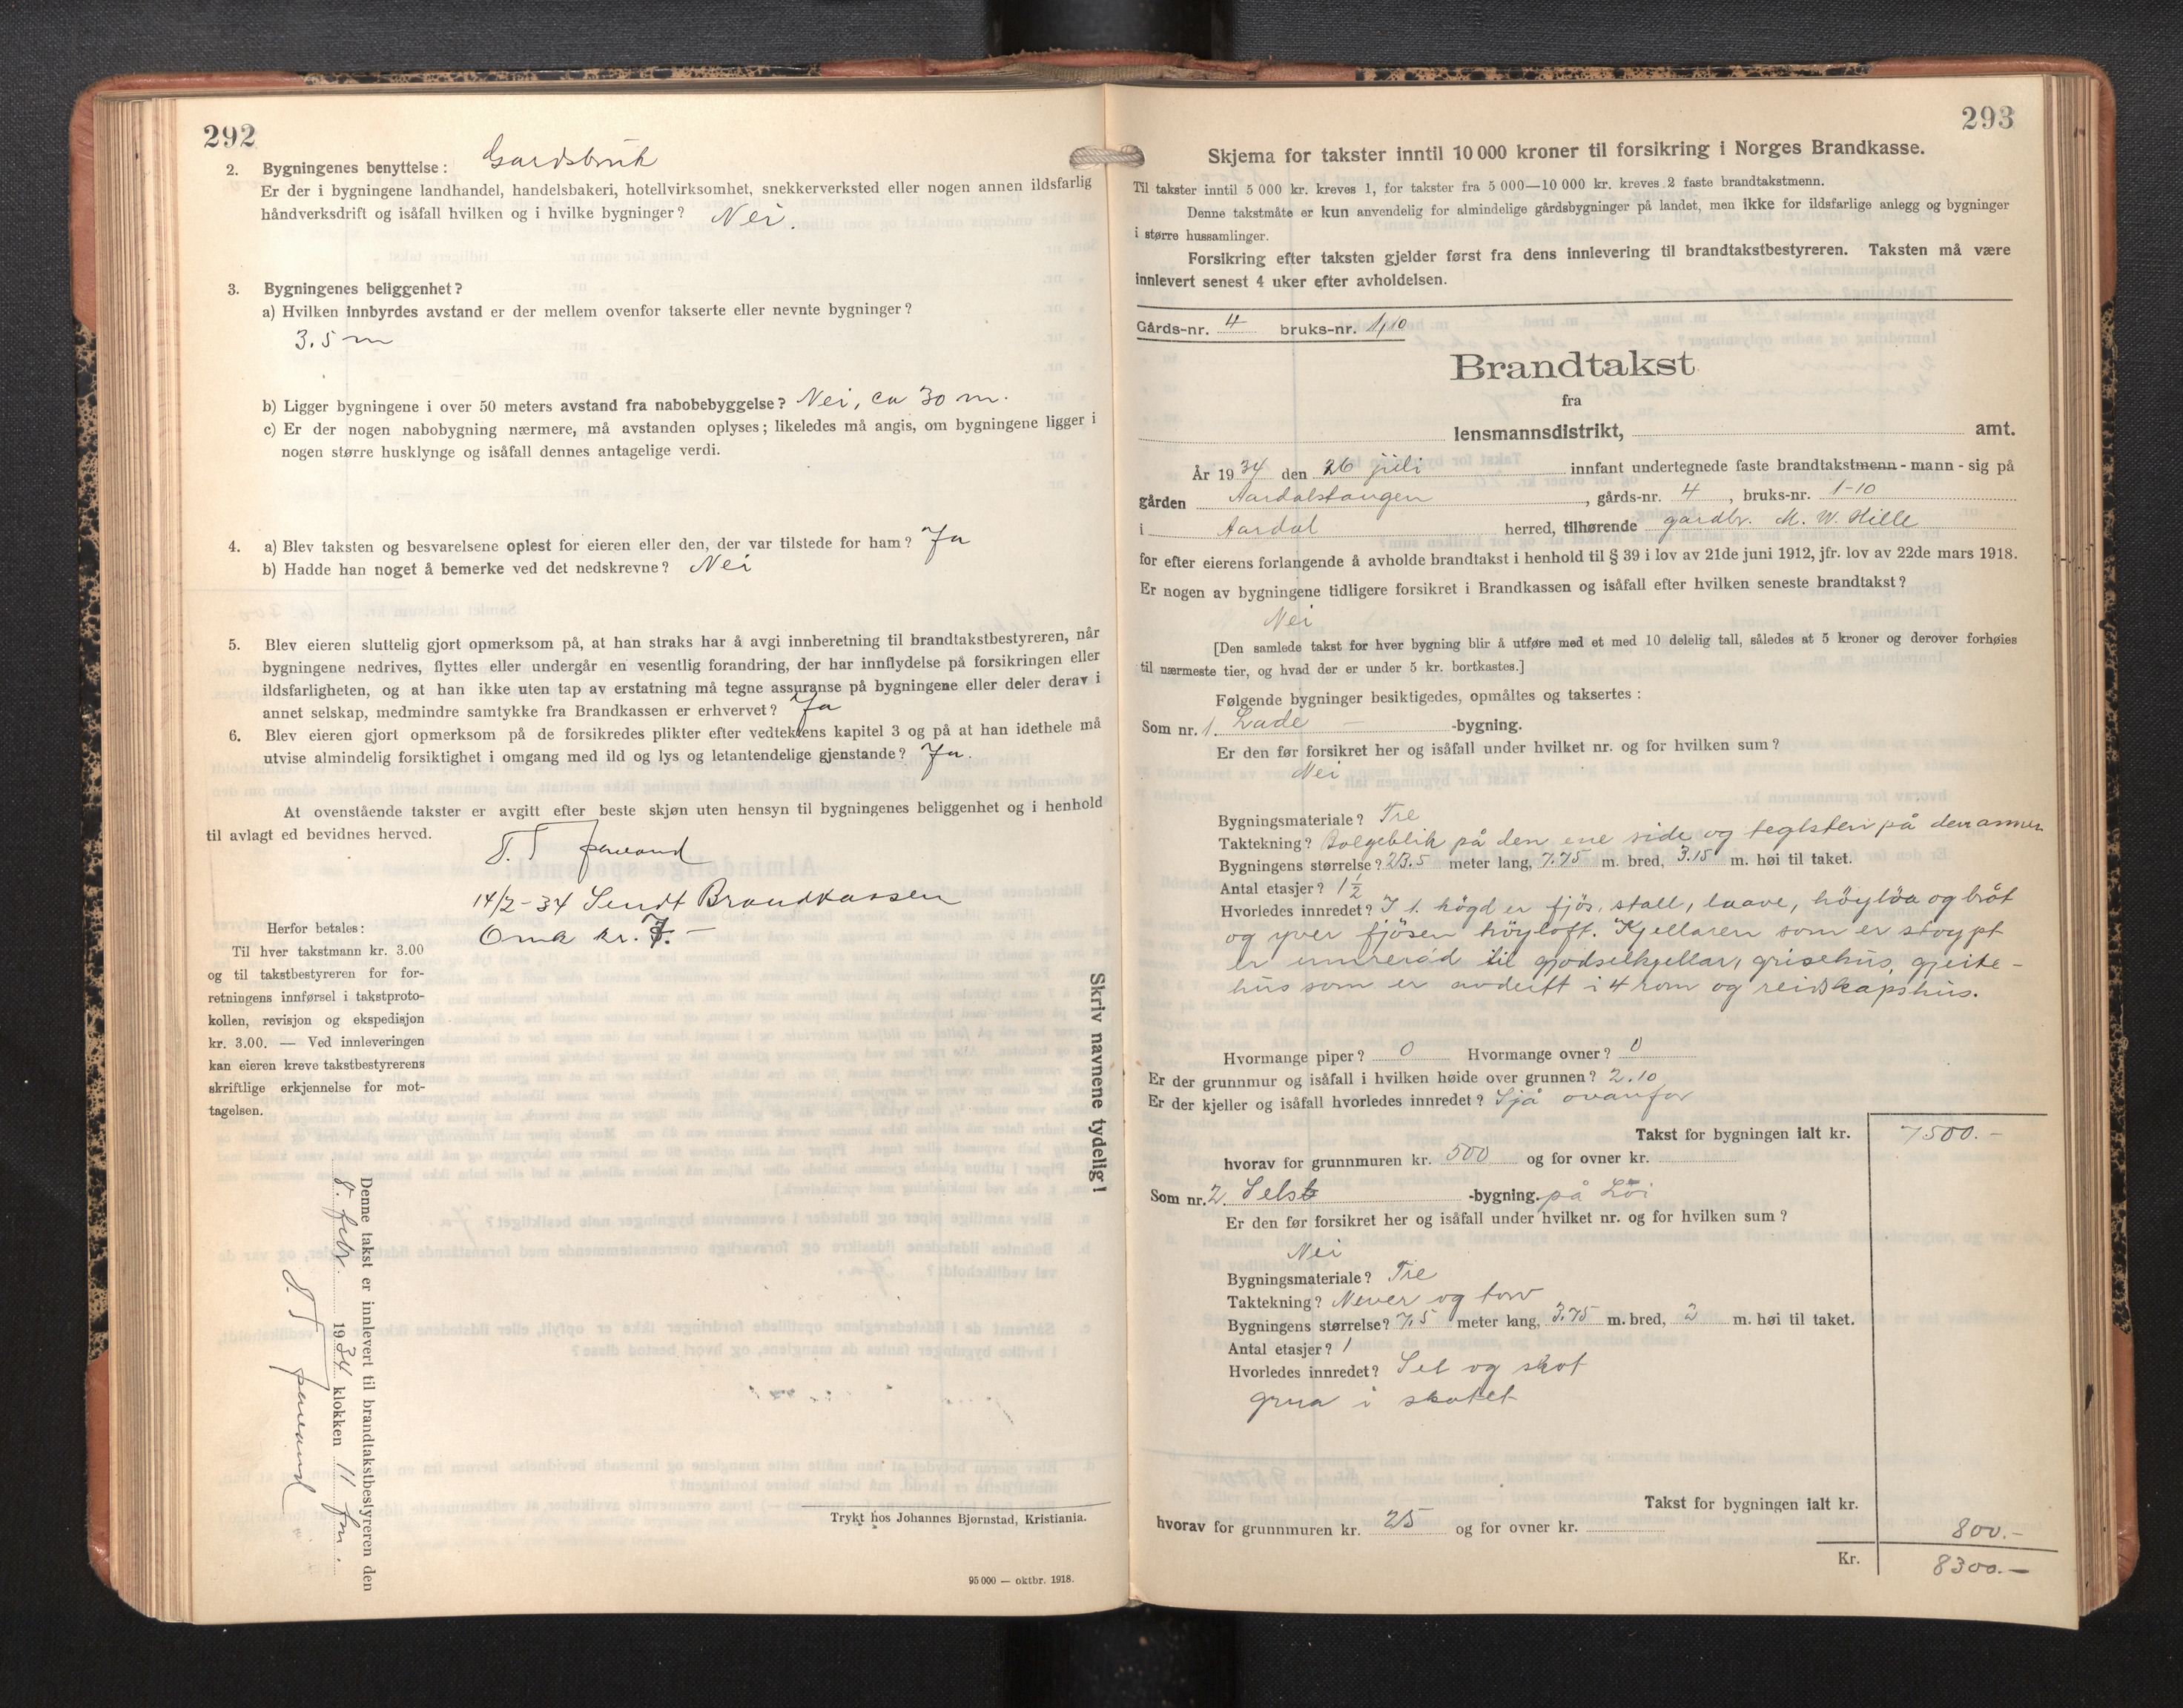 292
2. Bygningenes benyttelse: Gardsbruk
Er der i bygningene landhandel, handelsbakeri, hotellvirksomhet, snekkerverksted eller nogen annen ildsfarlig
håndverksdrift og isåfall hvilken og i hvilke bygninger? Nei.
3. Bygningenes beliggenhet?
a) Hvilken innbyrdes avstand er der mellem ovenfor takserte eller nevnte bygninger?
3.5 m
b) Ligger bygningene i over 50 meters avstand fra nabobebyggelse? Nei, ca 30 m.
c) Er der nogen nabobygning nærmere, må avstanden oplyses; likeledes må angis, om bygningene ligger i
nogen større husklynge og isåfall dennes antagelige verdi.
4. a) Blev taksten og besvarelsene oplest for eieren eller den, der var tilstede for ham? Ja
b) Hadde han noget å bemerke ved det nedskrevne? Nei
5. Blev eieren sluttelig gjort opmerksom på, at han straks har å avgi innberetning til brandtakstbestyreren, når
bygningene nedrives, flyttes eller undergår en vesentlig forandring, der har innflydelse på forsikringen eller
ildsfarligheten, og at han ikke uten tap av erstatning må tegne assuranse på bygningene eller deler derav i
annet selskap, medmindre samtykke fra Brandkassen er erhvervet? Ja
6. Blev eieren gjort opmerksom på de forsikredes plikter efter vedtektens kapitel 3 og på at han idethele må
utvise almindelig forsiktighet i omgang med ild og lys og letantendelige gjenstande? Ja.
At ovenstående takster er avgitt efter beste skjøn uten hensyn til bygningenes beliggenhet og i henhold
til avlagt ed bevidnes herved.
14/2-34 Sendt Brandkassen
Omk kr. 7.-
Herfor betales:
Til hver takstmann kr. 3.00
og til takstbestyreren for for-
retningens innførsel i takstproto-
kollen, revisjon og ekspedisjon
kr. 3.00. — Ved innleveringen
kan eieren kreve takstbestyrerens
skriftlige erkjennelse for mot-
tagelsen.
Skriv navnene tydelig!
Denne takst er innlevert til brandtakstbestyreren den
8. febr. 1934 klokken 11 fm.
Trykt hos Johannes Bjørnstad, Kristiania.
95 000 — oktbr. 1918.
293
Skjema for takster inntil 10 000 kroner til forsikring i Norges Brandkasse.
Til takster inntil 5 000 kr. kreves 1, for takster fra 5 000—10 000 kr. kreves 2 faste brandtakstmenn.
Denne takstmåte er kun anvendelig for almindelige gårdsbygninger på landet, men ikke for ildsfarlige anlegg og bygninger
i større hussamlinger.
Forsikring efter taksten gjelder først fra dens innlevering til brandtakstbestyreren. Taksten må være
innlevert senest 4 uker efter avholdelsen.
Gårds-nr. 4 bruks-nr. 1,10
Brandtakst
fra
lensmannsdistrikt, amt.
År 1934 den 26 juli innfant undertegnede faste brandtakstmenn - mann - sig på
gården Aardalstangen, gårds-nr. 4, bruks-nr. 1-10
i Aardal herred, tilhørende gardbr. M. W. Hille
for efter eierens forlangende å avholde brandtakst i henhold til § 39 i lov av 21de juni 1912, jfr. lov av 22de mars 1918.
Er nogen av bygningene tidligere forsikret i Brandkassen og isåfall efter hvilken seneste brandtakst?
Nei
[Den samlede takst for hver bygning blir å utføre med et med 10 delelig tall, således at 5 kroner og derover forhøies
til nærmeste tier, og hvad der er under 5 kr. bortkastes.]
Følgende bygninger besiktigedes, opmåltes og taksertes:
Som nr. 1. Lade - -bygning.
Er den før forsikret her og isåfall under hvilket nr. og for hvilken sum?
Nei
Bygningsmateriale? Tre
Taktekning? Bolgeblik på den ene side og teglsten på den annen
Bygningens størrelse? 23.5 meter lang, 7.75 m. bred, 3.15 m. høi til taket.
Antal etasjer? 1 1/2
Hvorledes innredet? I 1. högd er fjös, stall, laave, höyløa og bröt
og yver fjösen höyloft. Kjellaren som er stoypt
er innreiod til gjødselkjellar, grisehus, gjeite-
hus som er avdeilt i 4 rom og reidskapshus.
Hvormange piper? 0 Hvormange ovner? 0
Er der grunnmur og isåfall i hvilken høide over grunnen? 2.10
Er der kjeller og isåfall hvorledes innredet? Sjå ovanfor
Takst for bygningen ialt kr. 7500.-
hvorav for grunnmuren kr. 500 og for ovner kr.
Som nr. 2. Sels -bygning. på Löi
Er den før forsikret her og isåfall under hvilket nr. og for hvilken sum?
Nei
Bygningsmateriale? Tre
Taktekning? Never og torv
Bygningens størrelse? 7,5 meter lang, 3.75 m. bred, 2 m. høi til taket.
Antal etasjer? 1
Hvorledes innredet? Sel og skot
grua i skotet
Takst for bygningen ialt kr. 800.-
hvorav for grunnmuren kr. 25 og for ovner kr.
Kr. 8300.-